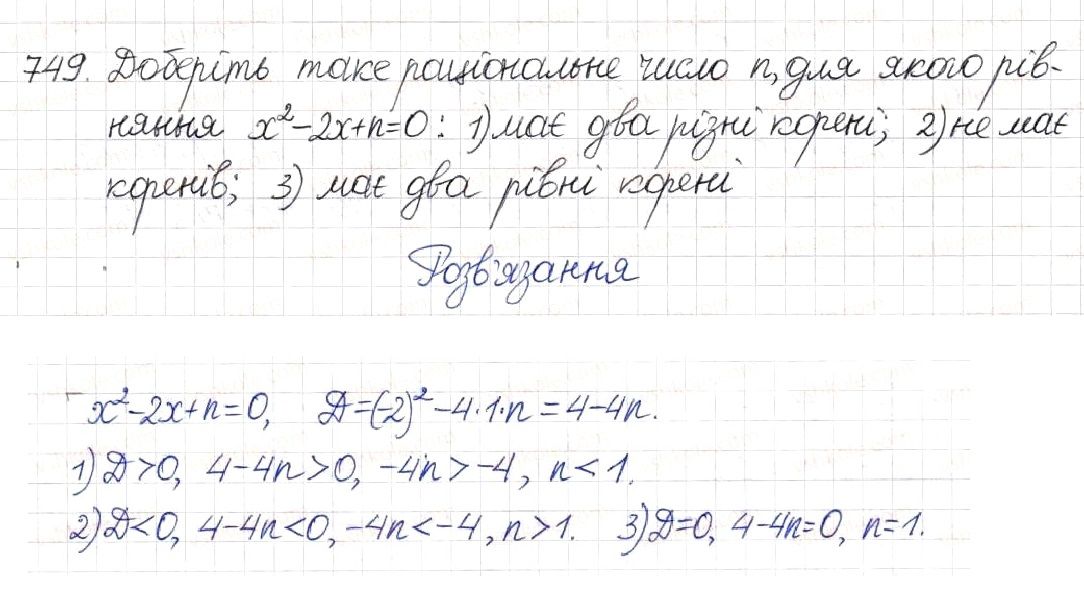 749. Доберіть таке раціональне число n, для якого рів-
няння x²-2x+n=0: 1) має два різні корені; 2) не має
коренів; 3) має два рівні корені
Розв'язання
x²-2x+n=0, Д=(-2)²-4·1·n=4-4n.
1) Д>0, 4-4n>0, -4n>-4, n<1.
2) Д<0, 4-4n<0, -4n<-4, n>1. 3) Д=0, 4-4n=0, n=1.